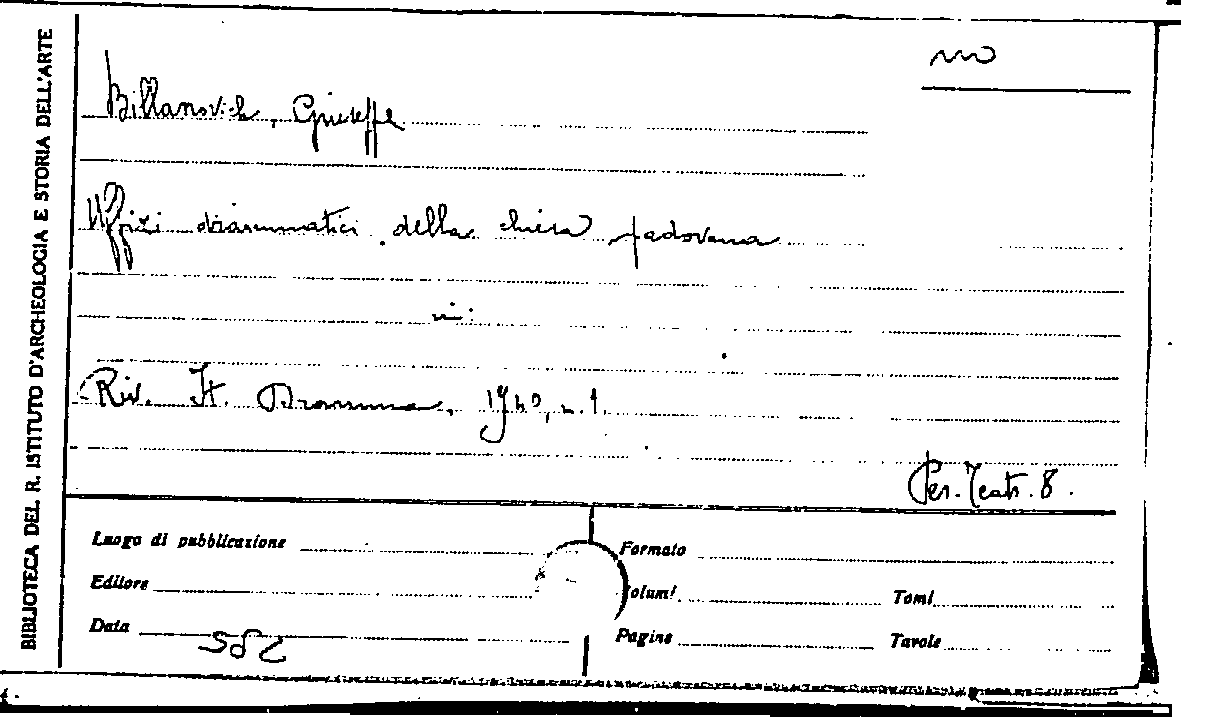 BIBLIOTECA DEL R. ISTITUTO D'ARCHEOLOGIA E STORIA DELL'ARTE
Billanovich, Giuseppe
Uffizi drammatici della chiesa padovana
in:
Riv. It. Dramma, 1940, n. 1.
Per. Teatr. 8.
Luogo di pubblicazione
Formato
Editore
Volumi
Tomi
Data
Pagine
Tavole